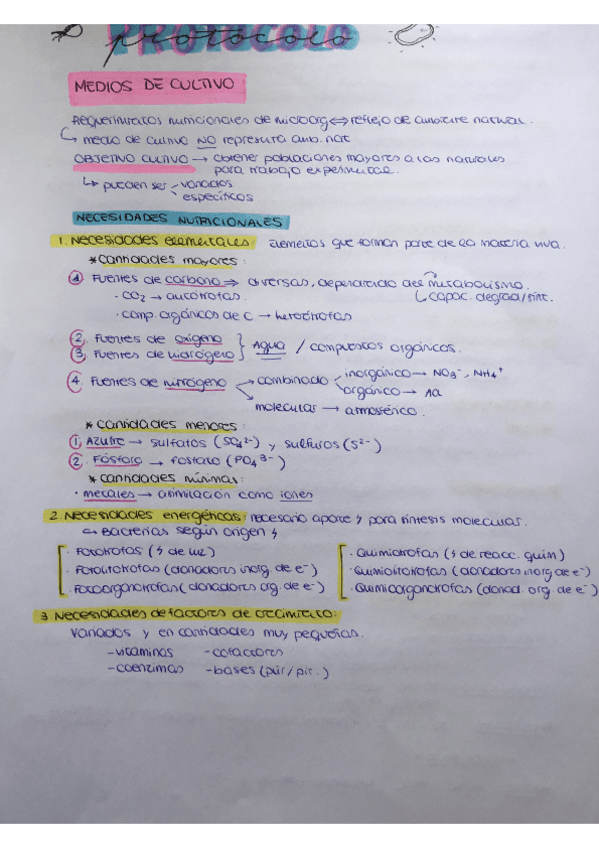 PROTOCOLO
protocolo
MEDIOS DE CULTIVO
Requerimientos nutricionales de microorg ⇔ reflejo de ambiente natural.
↳ medio de cultivo NO representa amb. nat
OBJETIVO CULTIVO → obtener poblaciones mayores a las naturales
para trabajo experimental.
↳ pueden ser - variados
específicos
NECESIDADES NUTRICIONALES
1. Necesidades elementales: Elementos que forman parte de la materia viva.
* Cantidades mayores:
1 Fuentes de carbono ⇒ diversas, dependiendo del metabolismo.
· CO2 → autótrofas. ↳ capac. degrad/sint.
· comp. orgánicos de C → heterótrofas
2. Fuentes de oxígeno } Agua / compuestos orgánicos.
3. Fuentes de hidrógeno
4. Fuentes de nitrógeno → combinado inorgánico → NO3⁻, NH4⁺
orgánico → Aa
molecular → atmosférico.
* Cantidades menores:
1. Azufre → sulfatos (SO4²⁻) y sulfuros (S²⁻)
2. Fósforo → fosfato (PO4³⁻)
* Cantidades mínimas:
· metales → asimilación como iones
2. Necesidades energéticas: necesario aporte ϟ para síntesis moléculas.
↪ Bacterias según origen ϟ
· Fotótrofas (ϟ de luz) · Quimiotrofas (ϟ de reacc. quím)
· Fotolitótrofas (donadores inorg. de e⁻) · Quimiolitótrofas (donadores inorg de e⁻)
· Fotoorganotrofas (donadores org. de e⁻) · Quimiorganotrofas (donad. org. de e⁻)
3 Necesidades de factores de crecimiento:
Variados y en cantidades muy pequeñas.
- vitaminas - cofactores
- coenzimas - bases (pur/pir.)